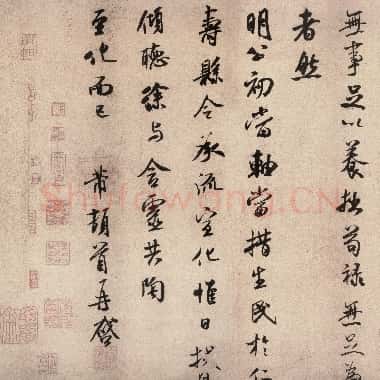 無事足以養拙苟祿無足爲
者然
明公初當軸當措生民於仁
壽縣令承流宣化惟日採
傾聽徐与含靈共陶
至化而已 芾頓首再啓